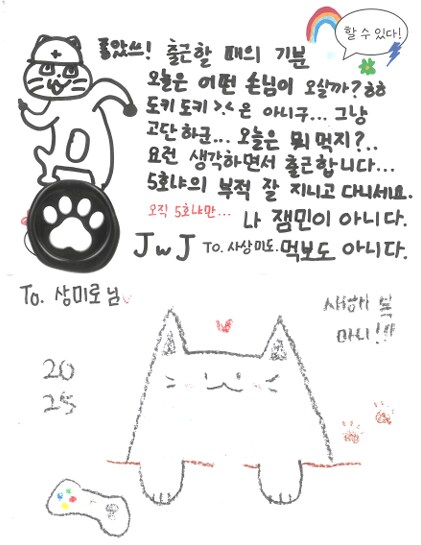 할 수 있다!
좋았쓰! 출근할 때의 기분
오늘은 어떤 손님이 오실까? ㅎㅎ
도키도키 >.< 은 아니구... 그냥
고단하군... 오늘은 뭐 먹지?..
요런 생각하면서 출근합니다...
5호냐의 부적 잘 지니고 다니세요.
오직 5호냐만...
나 잼민이 아니다.
JwJ To. 사상미도. 먹보도 아니다.
To. 상미로님
새해 복
마니!!
20
25